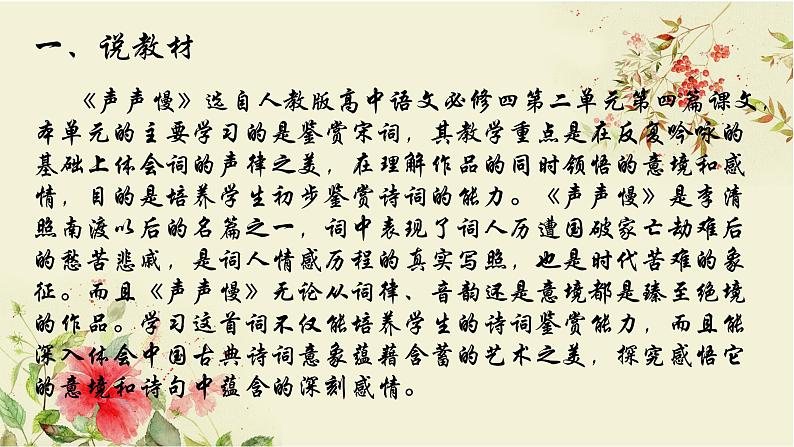 一、说教材
《声声慢》选自人教版高中语文必修四第二单元第四篇课文，
本单元的主要学习的是鉴赏宋词，其教学重点是在反复吟咏的
基础上体会词的声律之美，在理解作品的同时领悟的意境和感
情，目的是培养学生初步鉴赏诗词的能力。《声声慢》是李清
照南渡以后的名篇之一，词中表现了词人历遭国破家亡劫难后
的愁苦悲戚，是词人情感历程的真实写照，也是时代苦难的象
征。而且《声声慢》无论从词律、音韵还是意境都是臻至绝境
的作品。学习这首词不仅能培养学生的诗词鉴赏能力，而且能
深入体会中国古典诗词意象蕴藉含蓄的艺术之美，探究感悟它
的意境和诗句中蕴含的深刻感情。